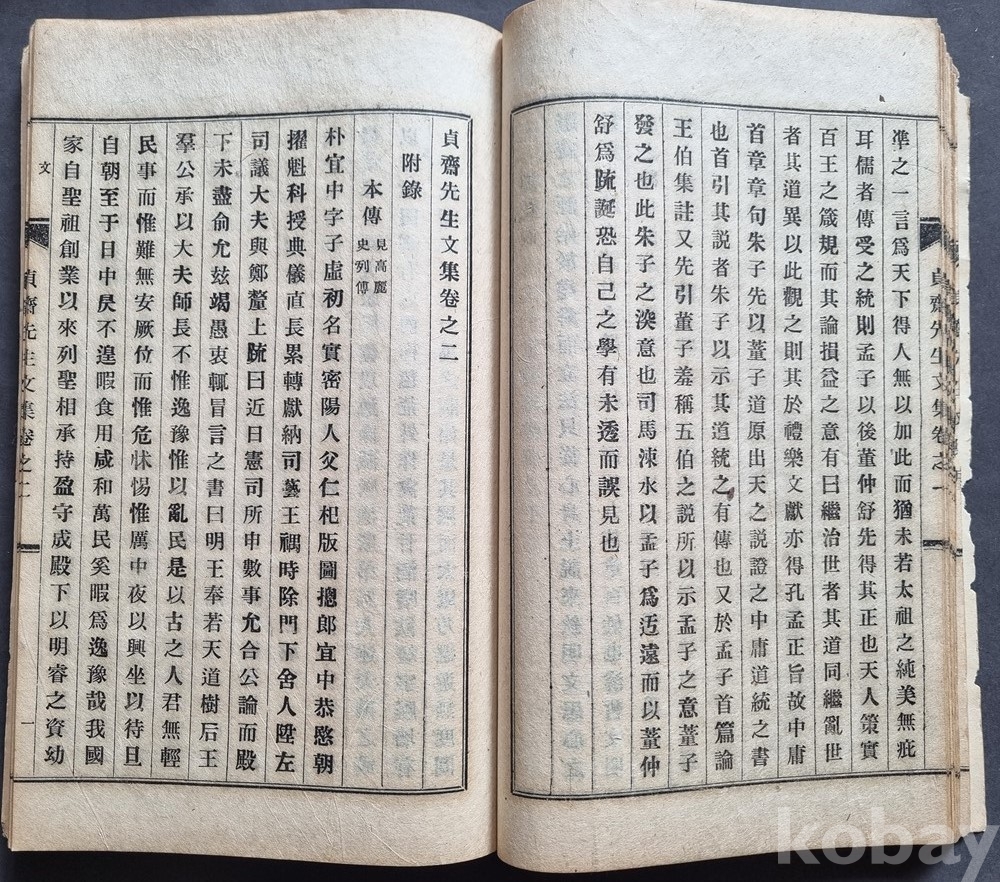 準之一言爲天下得人無以加此而猶未若太祖之純美無疵
耳儒者傳受之統則孟子以後董仲舒先得其正也天人策實
百王之箴規而其論損益之意有曰繼治世者其道同繼亂世
者其道異以此觀之則其於禮樂文獻亦得孔孟正旨故中庸
首章章句朱子先以董子道原出天之説證之中庸道統之書
也首引其説者朱子以示其道統之有傳也又於孟子首篇論
王伯集註又先引董子羞稱五伯之説所以示孟子之意董子
發之也此朱子之深意也司馬涑水以孟子爲迃遠而以董仲
舒爲䟽誕恐自己之學有未透而誤見也
貞齋先生文集卷之一
貞齋先生文集卷之二
附錄
本傳 見高麗史列傳
朴宜中字子虛初名實密陽人父仁杞版圖摠郎宜中恭愍朝
擢魁科授典儀直長累轉獻納司藝王禑時除門下舍人陞左
司議大夫與鄭釐上䟽曰近日憲司所申數事允合公論而殿
下未盡俞允玆竭愚衷輒冒言之書曰明王奉若天道樹后王
羣公承以大夫師長不惟逸豫惟以亂民是以古之人君無輕
民事而惟難無安厥位而惟危怵惕惟厲中夜以興坐以待旦
自朝至于日中昃不遑暇食用咸和萬民奚暇爲逸豫哉我國
家自聖祖創業以來列聖相承持盈守成殿下以明睿之資幼
文
貞齋先生文集卷之二
一
kobay